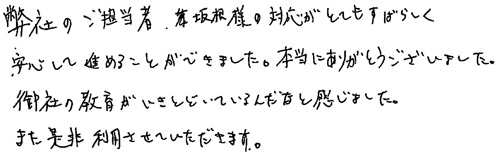 弊社のご担当者、赤坂根様の対応がとてもすばらしく
安心して進めることができました。本当にありがとうございました。
御社の教育がいきとどいているんだなと感じました。
また是非利用させていただきます。